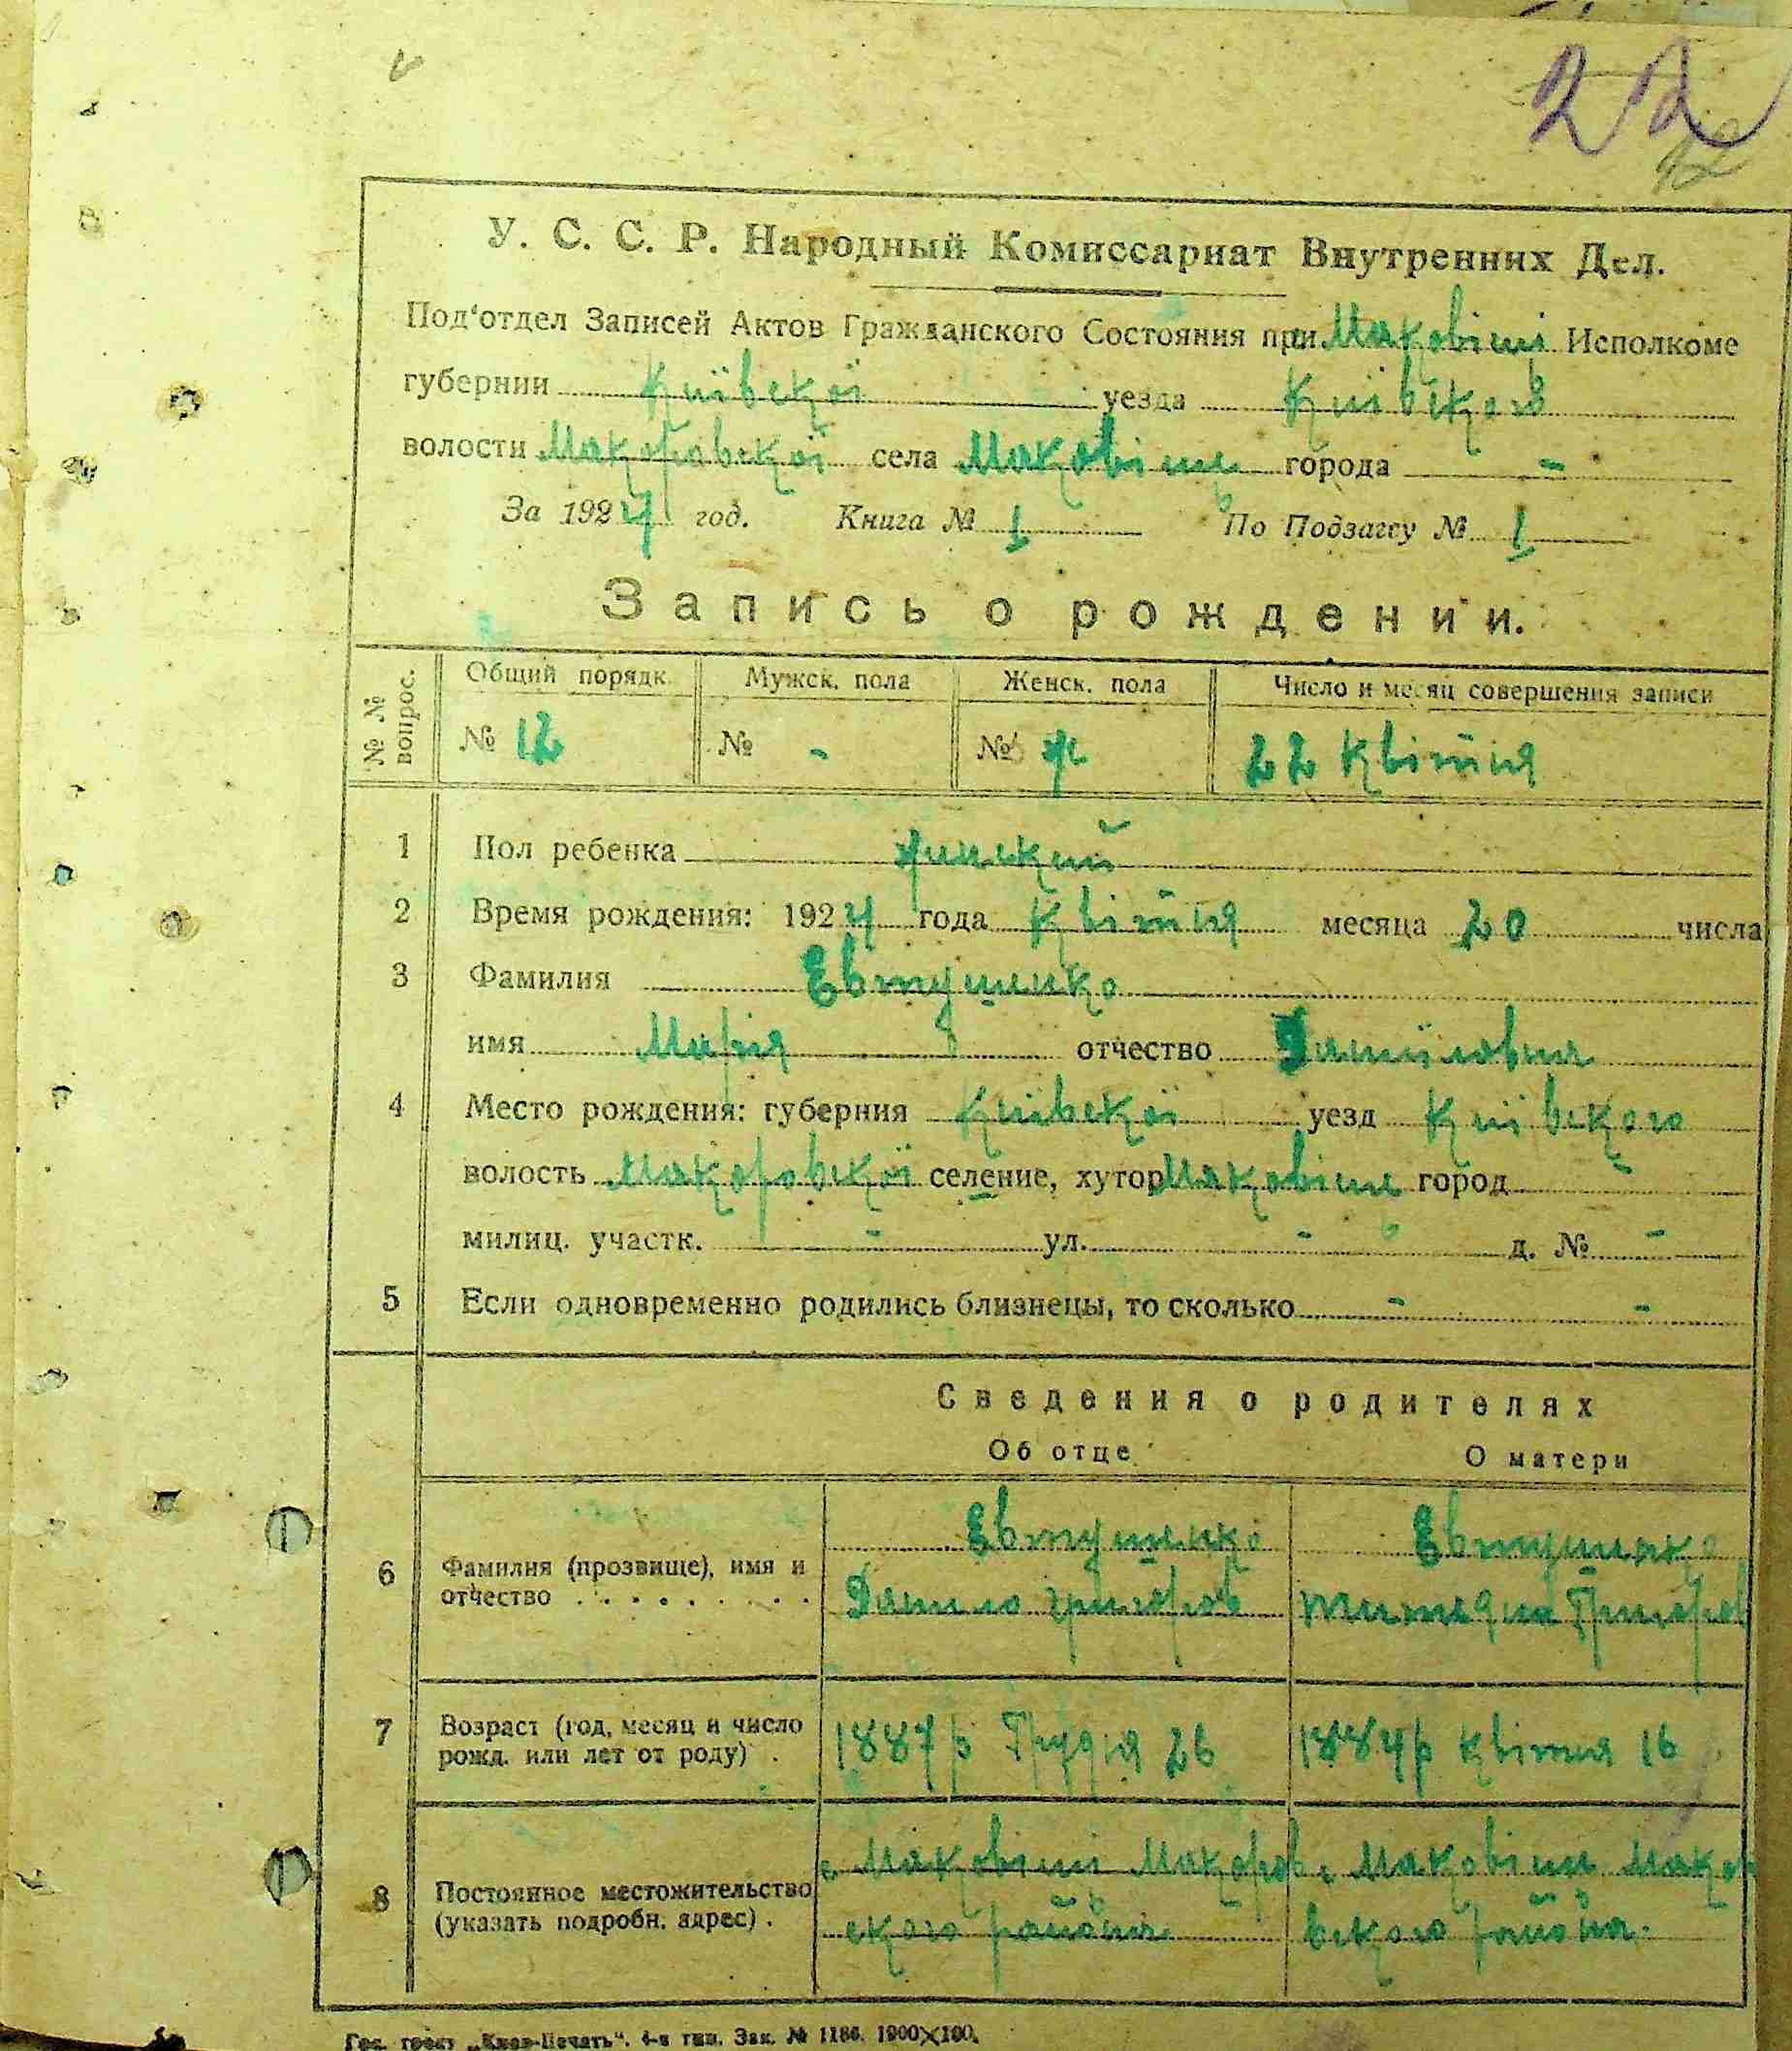 22
12
У. С. С. Р. Народный Комиссариат Внутренних Дел.
Под'отдел Записей Актов Гражданского Состояния при Маковіщі Исполкоме
губернии Київскої уезда Київского
волости Макоровскої села Маковіще города -
За 1924 год. Книга № 1 По Подзагсу № 1
Запись о рождении.
№ № вопрос. Общий порядк Мужск. пола Женск. пола Число и месяц совершения записи
№ 12 № - № 22 квітня
1 Пол ребенка
2 Время рождения: 1924 года квітня месяца 20 числа
3 Фамилия Евтушенко
имя Марія отчество Даниловна
4 Место рождения: губерния Київскої уезд Київского
волость Макоровскої селение, хутор Маковіще город -
милиц. участк. - ул. - д. № -
5 Если одновременно родились близнецы, то сколько - -
Сведения о родителях
Об отце О матери
Евтушенко Евтушенко
6 Фамилия (прозвище), имя и
отчество . . . . . . . . Данило Григоров Григоров
7 Возраст (год, месяц и число
рожд. или лет от роду) . 1887 р Грудня 26 1884 р квітня 16
с Маковіщі Макоров с Маковіще Мако
8 Постоянное местожительство
(указать подробн. адрес) . ского района вского района.
Гос. трест „Киев-Печать". 4-я тип. Зак. № 1186. 1900×100.